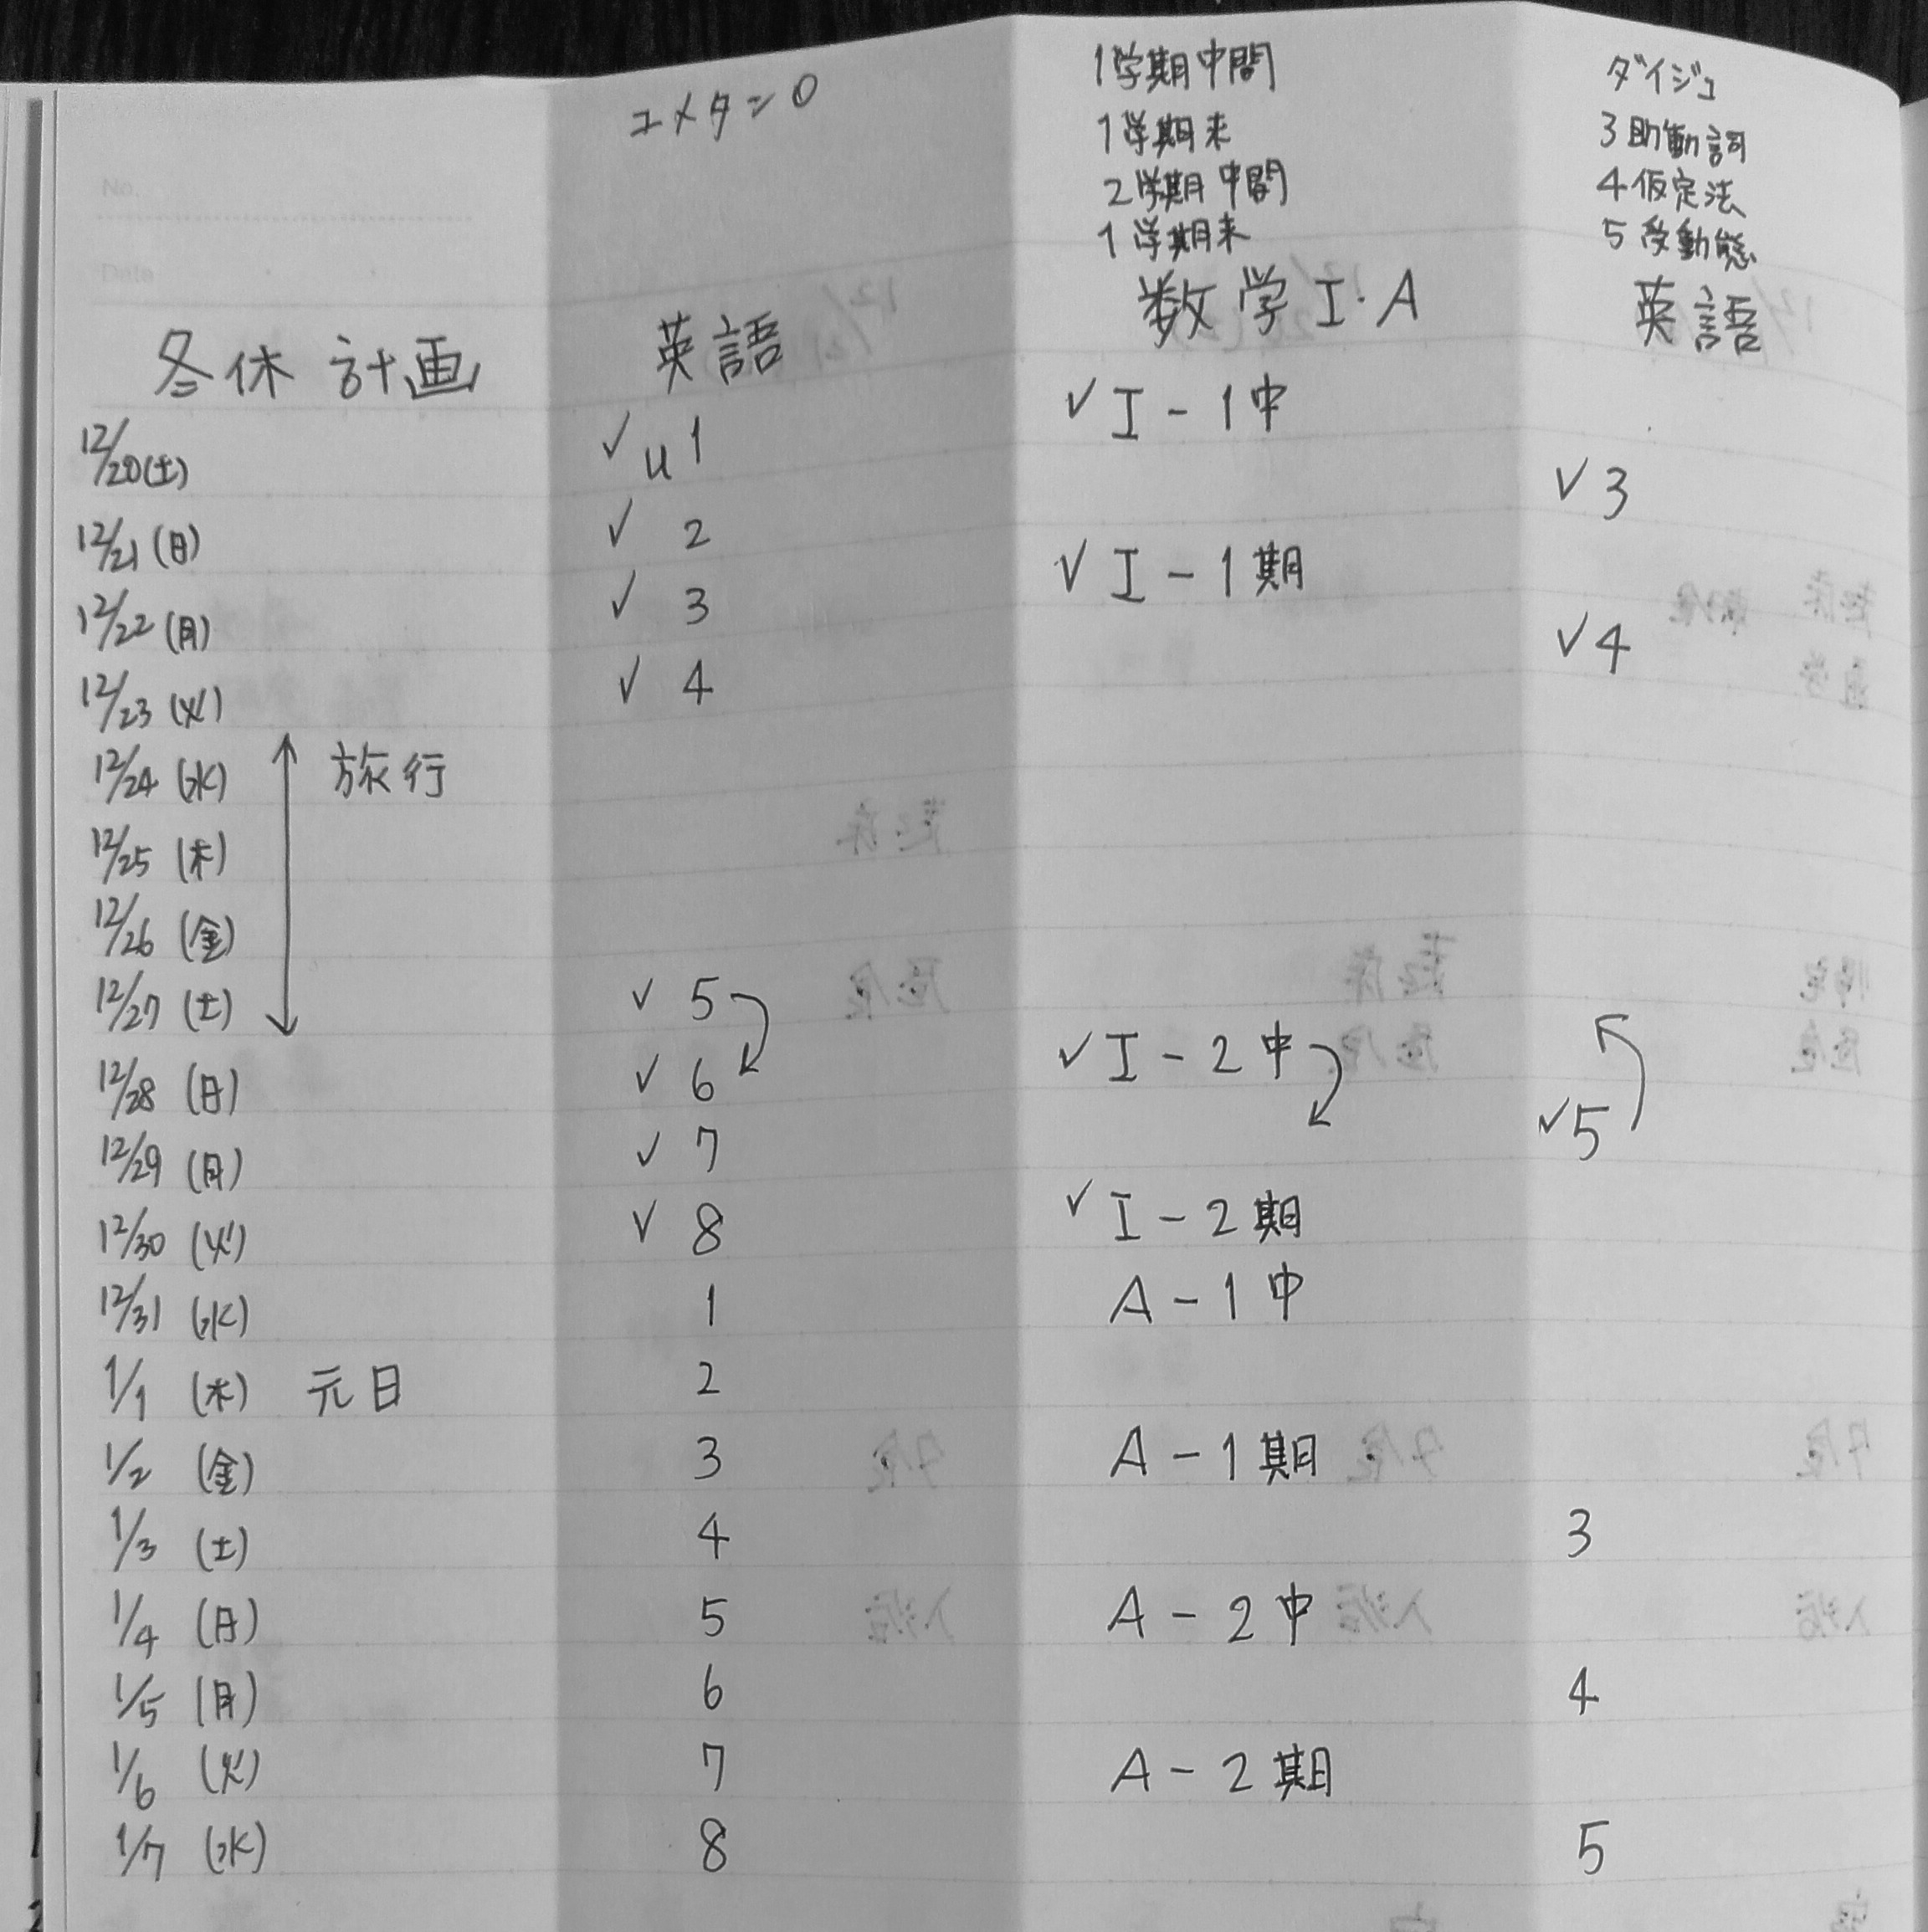 No.
Date
ユメタン0
1学期中間
1学期末
2学期中間
1学期末
ダイジュ
3助動詞
4仮定法
5受動態
冬休計画 英語 数学I・A 英語
12/20(土) ✓ u 1 ✓ I-1中
12/21(日) ✓ 2 ✓ 3
12/22(月) ✓ 3 ✓ I-1期
12/23(火) ✓ 4 ✓ 4
12/24(水) 旅行
12/25(木)
12/26(金)
12/27(土) ✓ 5
12/28(日) ✓ 6 ✓ I-2中
12/29(月) ✓ 7 ✓ 5
12/30(火) ✓ 8 ✓ I-2期
12/31(水) 1 A-1中
1/1(木) 元日 2
1/2(金) 3 A-1期
1/3(土) 4 3
1/4(日) 5 A-2中
1/5(月) 6 4
1/6(火) 7 A-2期
1/7(水) 8 5